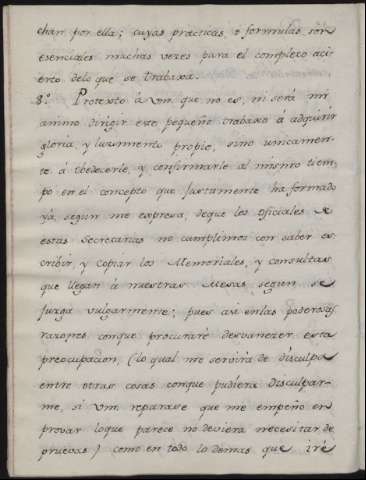 chan por ella; cuyas practicas, o formulas son
esenciales muchas veces para el complexo aci-
erto delo que se trabaxa.
8.º Protexto à Vm. que no es, ni será mi
animo dirigir este pequeño trabaxo á adquirir
gloria, y lucimiento propio, sino unicamen-
te á obedecerle, y confirmarle al mismo tiem-
po en el concepto que justamente ha formado
yá, segun me expresa, deque los Oficiales de
estas Secretarias no cumplimos con saber es-
cribir, y copiar los Memoriales, y consultas
que llegan à nuestras Mesas, segun se
juzga vulgarmente; pues asi en las poderosas
razones conque procuraré desvanecer esta
preocupacion, (lo qual me servirá de disculpa
entre otras cosas conque pudiera disculpar-
me, si Vm. reparase que me empeño en
provar loque parece no deviera necesitar de
pruevas) como en todo lo demas que iré